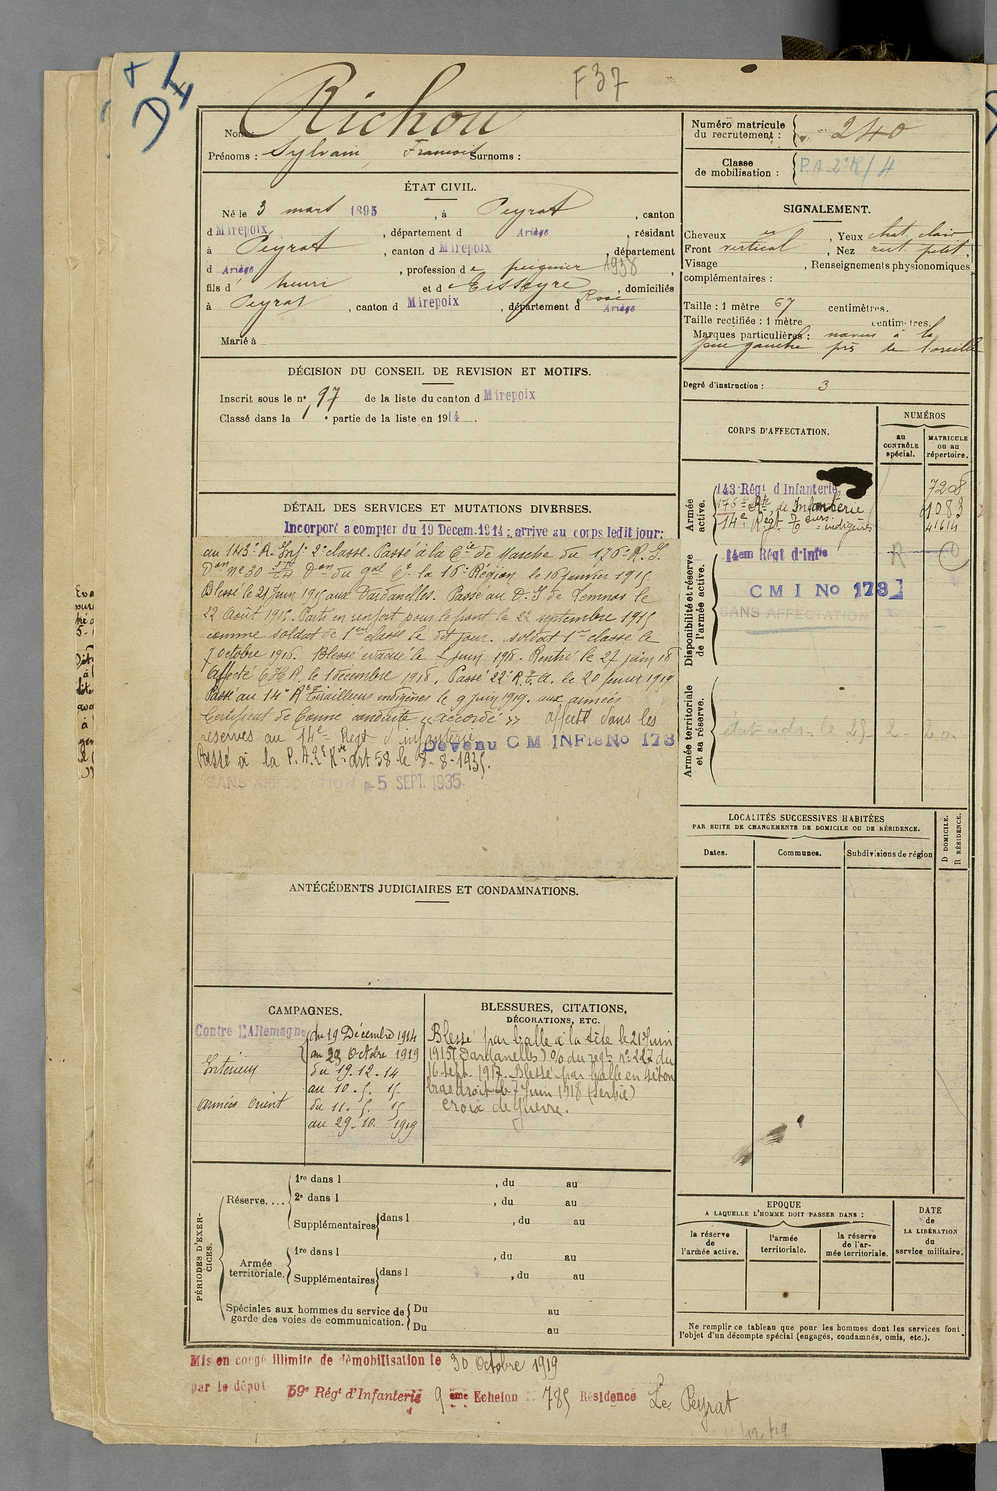 F37
Nom: Richou
Prénoms : Sylvain François Surnoms :
Numéro matricule du recrutement : 240
Classe de mobilisation : P.A 2e R/4
ÉTAT CIVIL.
Né le 3 mars 1895, à Peyrat, canton
d Mirepoix, département d Ariège, résidant
à Peyrat, canton d Mirepoix, département
d Ariège, profession de peignier A938,
fils d' henri et d Eisseyre Rose, domiciliés
à Peyrat, canton d Mirepoix, département d Ariège
Marié à
DÉCISION DU CONSEIL DE REVISION ET MOTIFS.
Inscrit sous le n° 97 de la liste du canton d Mirepoix
Classé dans la 1e partie de la liste en 1914.
SIGNALEMENT.
Cheveux , Yeux chat. clair
Front vertical, Nez rect. petit.
Visage , Renseignements physionomiques
complémentaires :
Taille : 1 mètre 67 centimètres.
Taille rectifiée : 1 mètre centimètres.
Marques particulières : naevus à la
joue gauche près de l'oreille
Degré d'instruction : 3
CORPS D'AFFECTATION.
NUMÉROS
au CONTRÔLE spécial.
MATRICULE ou au répertoire.
Armée active.
143 Régt d'Infanterie 7208
176e Rt de Infanterie 1083
14e Régt Teurs indigènes 41614
Disponibilité et réserve de l'armée active.
14em Régt d'Infie R
C M I No 173
SANS AFFECTATION
Armée territoriale et sa réserve.
DÉTAIL DES SERVICES ET MUTATIONS DIVERSES.
Incorporé a compter du 19 Decem. 1914 : arrive au corps ledit jour:
au 143e R. Inf. 2e classe. Passé à la 6e Cie de Marche du 176e R. I.
Don n° 30 Don du gal Ct la 16e Région le 16 janvier 1915.
Blessé le 21 Juin 1915 aux Dardanelles. Passé au D. I de Lemnos le
22 Août 1915. Parti en renfort pour le front le 22 septembre 1915
comme soldat de 1ere classe le dit jour. soldat 1re classe le
7 octobre 1916. Blessé évacué le juin 1918. Rentré le 27 juin 18
Affecté C.H.R. le 1 décembre 1918. Passé 22e R.I.C. le 20 février 1919
Passé au 14e Rt Tirailleurs indigènes le 9 juin 1919. aux armées
Certificat de bonne conduite "accordé" affecté dans les
réserves au 14e Régt d'infanterie
Devenu C M INFie No 173
Passé à la P.A.2e Rve art 58 le 8-8-1935.
SANS AFFECTATION 5 SEPT. 1935.
LOCALITÉS SUCCESSIVES HABITÉES
PAR SUITE DE CHANGEMENTS DE DOMICILE OU DE RÉSIDENCE.
Dates.
Communes.
Subdivisions de région
D DOMICILE.
R RÉSIDENCE.
ANTÉCÉDENTS JUDICIAIRES ET CONDAMNATIONS.
CAMPAGNES.
Contre l'Allemagne du 19 Décembre 1914
au 29 Octobre 1919
Intérieur du 19.12.14
au 10.5.15
Armées Orient du 11.5.15
au 29.10.1919
BLESSURES, CITATIONS,
DÉCORATIONS, ETC.
Blessé par balle à la tête le 21 Juin
1915 (Dardanelles) O/ du régt n° 227 du
16 sept. 1917. Blessé par balle en séton
bras droit le 7 Juin 1918 (Serbie)
Croix de guerre.
PÉRIODES D'EXERCICES.
Réserve....
1re dans l , du au
2e dans l , du au
Supplémentaires dans l , du au
Armée territoriale.
1re dans l , du au
Supplémentaires dans l , du au
Spéciales aux hommes du service de garde des voies de communication.
Du au
Du au
EPOQUE
A LAQUELLE L'HOMME DOIT PASSER DANS :
la réserve de l'armée active.
l'armée territoriale.
la réserve de l'armée territoriale.
DATE de LA LIBÉRATION du service militaire.
Ne remplir ce tableau que pour les hommes dont les services font
l'objet d'un décompte spécial (engagés, condamnés, omis, etc.).
Mis en congé illimité de démobilisation le 30 Octobre 1919
par le dépôt 59e Régt d'Infanterie 9 eme Echelon : 785 Résidence Le Peyrat